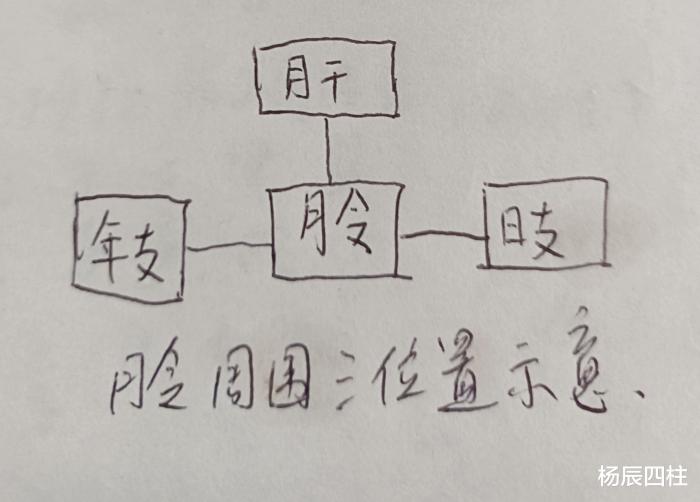 月干
年支 月令 日支
月令周围三位置示意、
杨辰四柱